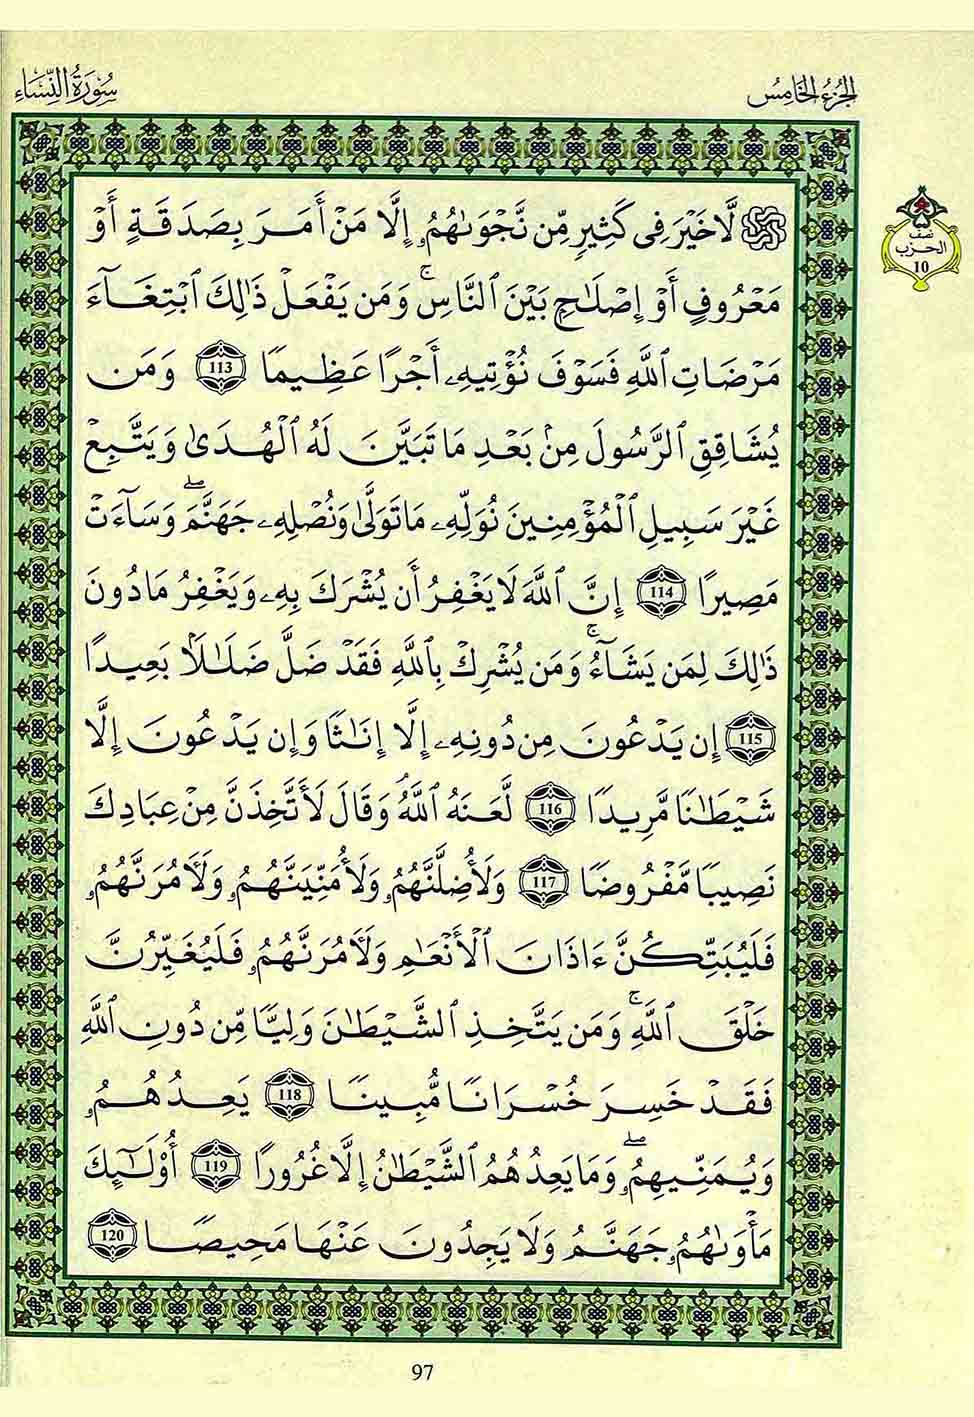 الجزء الخامس
سورة النساء
نصف
الحزب
10
۞ لَّا خَيْرَ فِى كَثِيرٍ مِّن نَّجْوَىٰهُمُۥٓ إِلَّا مَنْ أَمَرَ بِصَدَقَةٍ أَوْ
مَعْرُوفٍ أَوْ إِصْلَٰحٍۭ بَيْنَ ٱلنَّاسِ ۚ وَمَن يَفْعَلْ ذَٰلِكَ ٱبْتِغَآءَ
مَرْضَاتِ ٱللَّهِ فَسَوْفَ نُؤْتِيهِۦٓ أَجْرًا عَظِيمًا 113 وَمَن
يُشَاقِقِ ٱلرَّسُولَ مِنۢ بَعْدِ مَا تَبَيَّنَ لَهُ ٱلْهُدَىٰ وَيَتَّبِعْ
غَيْرَ سَبِيلِ ٱلْمُؤْمِنِينَ نُوَلِّهِۦ مَا تَوَلَّىٰ وَنُصْلِهِۦ جَهَنَّمَ ۖ وَسَآءَتْ
مَصِيرًا 114 إِنَّ ٱللَّهَ لَا يَغْفِرُ أَن يُشْرَكَ بِهِۦ وَيَغْفِرُ مَا دُونَ
ذَٰلِكَ لِمَن يَشَآءُ ۚ وَمَن يُشْرِكْ بِٱللَّهِ فَقَدْ ضَلَّ ضَلَٰلًۢا بَعِيدًا
115 إِن يَدْعُونَ مِن دُونِهِۦٓ إِلَّآ إِنَٰثًا وَإِن يَدْعُونَ إِلَّا
شَيْطَٰنًا مَّرِيدًا 116 لَّعَنَهُ ٱللَّهُ ۘ وَقَالَ لَأَتَّخِذَنَّ مِنْ عِبَادِكَ
نَصِيبًا مَّفْرُوضًا 117 وَلَأُضِلَّنَّهُمُۥ وَلَأُمَنِّيَنَّهُمُۥ وَلَءَامُرَنَّهُمُۥ
فَلَيُبَتِّكُنَّ ءَاذَانَ ٱلْأَنْعَٰمِ وَلَءَامُرَنَّهُمُۥ فَلَيُغَيِّرُنَّ
خَلْقَ ٱللَّهِ ۚ وَمَن يَتَّخِذِ ٱلشَّيْطَٰنَ وَلِيًّا مِّن دُونِ ٱللَّهِ
فَقَدْ خَسِرَ خُسْرَانًا مُّبِينًا 118 يَعِدُهُمُۥ
وَيُمَنِّيهِمُۥ ۖ وَمَا يَعِدُهُمُ ٱلشَّيْطَٰنُ إِلَّا غُرُورًا 119 أُو۟لَٰٓئِكَ
مَأْوَىٰهُمُۥ جَهَنَّمُ وَلَا يَجِدُونَ عَنْهَا مَحِيصًا 120
97